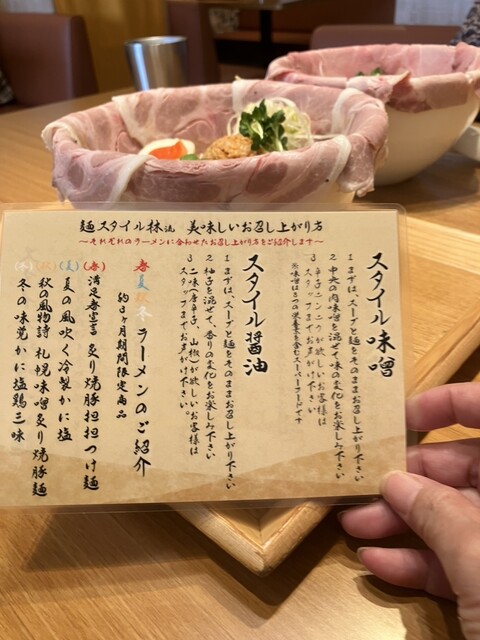 麺スタイル林流 美味しいお召し上がり方
～それぞれのラーメンに合わせたお召し上がり方をご紹介します～
スタイル味噌
1 まずは、スープと麺をそのままお召し上がり下さい
2 中央の肉味噌を混ぜて味の変化をお楽しみ下さい
3 辛子ニンニクが欲しいお客様は
スタッフまでお声がけ下さい
※味噌は5つの栄養素を含むスーパーフードです
スタイル醤油
1 まずは、スープと麺をそのままお召し上がり下さい
2 柚子を混ぜて、香りの変化をお楽しみ下さい
3 二味(唐辛子、山椒)が欲しいお客様は
スタッフまでお声がけ下さい。
春夏秋冬ラーメンのご紹介
約3ヶ月期間限定商品
(春)満足春宣言 炙り焼豚担担つけ麺
(夏)夏の風吹く冷製かに塩
(秋)秋の風物詩 札幌味噌炙り焼豚麺
(冬)冬の味覚かに塩鶏三昧